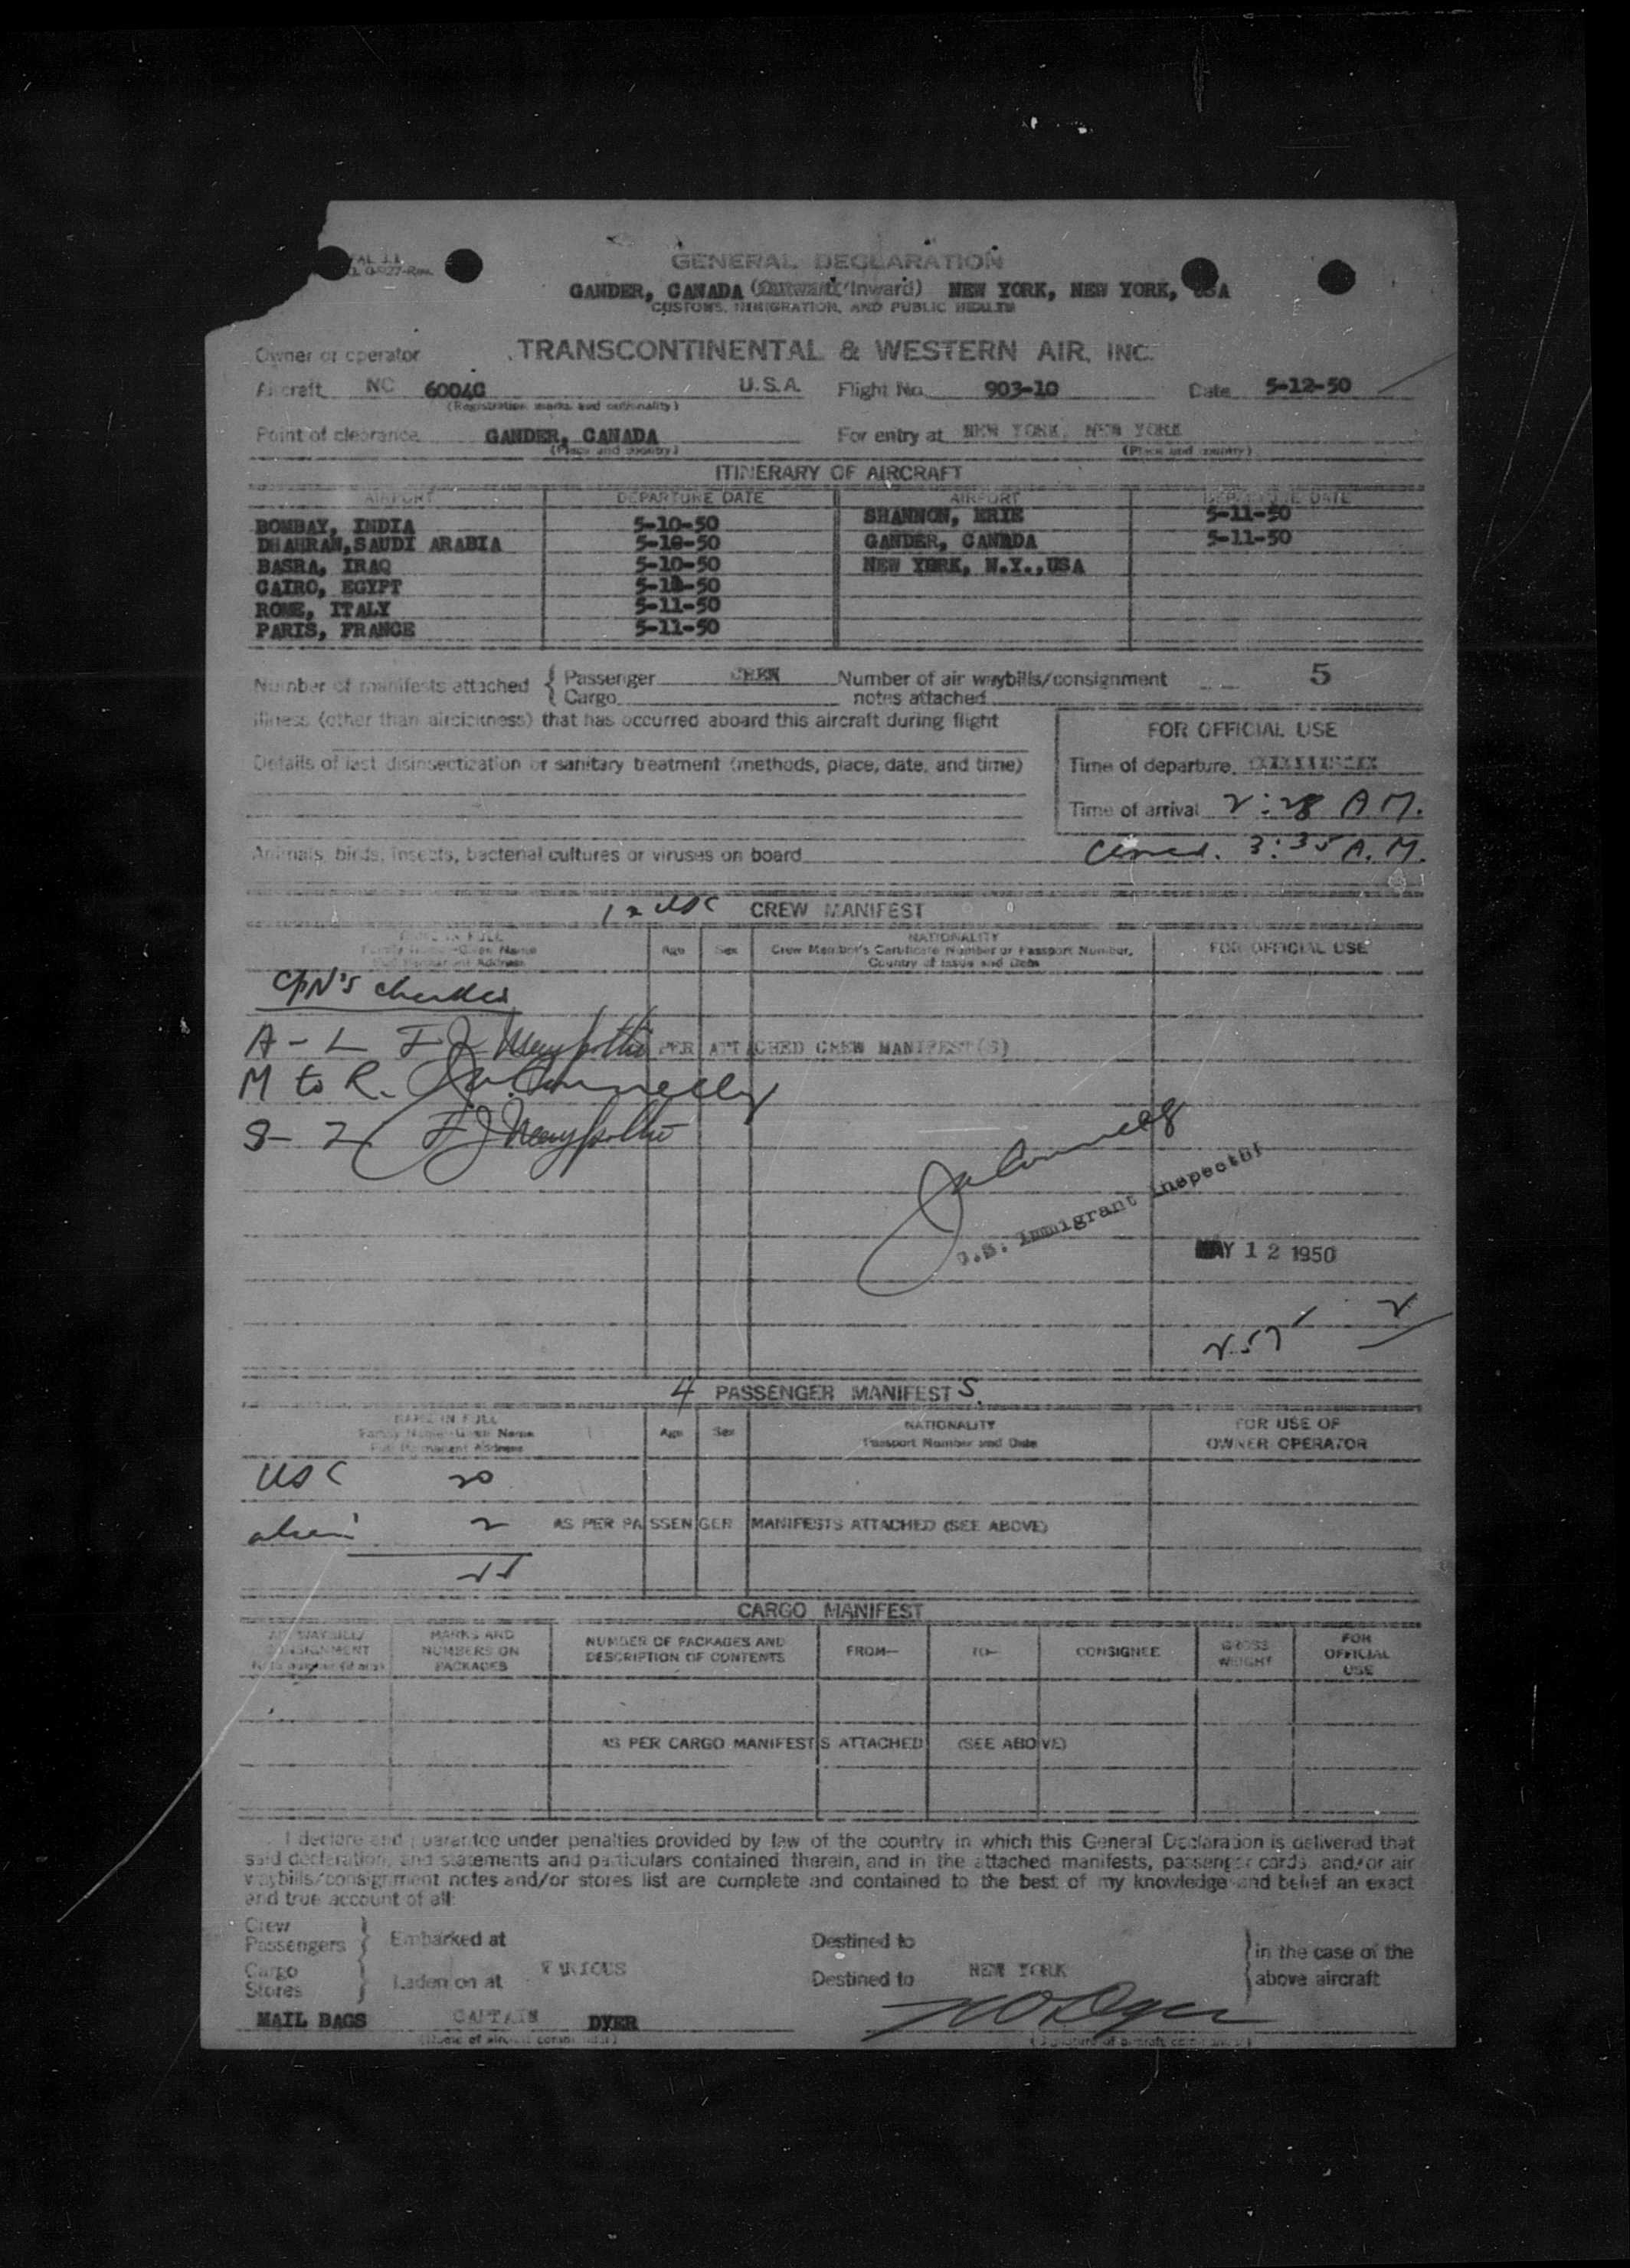 GENERAL DECLARATION
GANDER, CANADA (Outward/Inward) NEW YORK, NEW YORK, USA
CUSTOMS, IMMIGRATION, AND PUBLIC HEALTH
Owner or operator TRANSCONTINENTAL & WESTERN AIR, INC.
Aircraft NC 6004C U.S.A. Flight No. 903-10 Date 5-12-50
(Registration marks and nationality)
Point of clearance GANDER, CANADA For entry at NEW YORK, NEW YORK
(Place and country) (Place and country)
ITINERARY OF AIRCRAFT
AIRPORT DEPARTURE DATE AIRPORT DEPARTURE DATE
BOMBAY, INDIA 5-10-50 SHANNON, ERIE 5-11-50
DHAHRAN, SAUDI ARABIA 5-10-50 GANDER, CANADA 5-11-50
BASRA, IRAQ 5-10-50 NEW YORK, N.Y., USA
CAIRO, EGYPT 5-11-50
ROME, ITALY 5-11-50
PARIS, FRANCE 5-11-50
Number of manifests attached { Passenger CREW Number of air waybills/consignment 5
Cargo notes attached
Illness (other than airsickness) that has occurred aboard this aircraft during flight
FOR OFFICIAL USE
Details of last disinsectization or sanitary treatment (methods, place, date, and time)
Time of departure
Time of arrival 2:28 A.M.
Animals, birds, insects, bacterial cultures or viruses on board
3:35 A.M.
12 USC CREW MANIFEST
NAME IN FULL Age Sex NATIONALITY FOR OFFICIAL USE
Family Name—Given Name Crew Member's Certificate Number or Passport Number,
Full Permanent Address Country of Issue and Date
A - L
PER ATTACHED CREW MANIFEST(S)
M to R.
S - Z
U.S. Immigrant Inspector
MAY 12 1950
4 PASSENGER MANIFESTS
NAME IN FULL Age Sex NATIONALITY FOR USE OF
Family Name—Given Name Passport Number and Date OWNER OPERATOR
Full Permanent Address
USC 20
alien 2 AS PER PASSENGER MANIFESTS ATTACHED (SEE ABOVE)
CARGO MANIFEST
AIR WAYBILL/ CONSIGNMENT MARKS AND NUMBERS ON PACKAGES NUMBER OF PACKAGES AND DESCRIPTION OF CONTENTS FROM— TO— CONSIGNEE GROSS WEIGHT FOR OFFICIAL USE
AS PER CARGO MANIFESTS ATTACHED (SEE ABOVE)
I declare and guarantee under penalties provided by law of the country in which this General Declaration is delivered that
said declaration, and statements and particulars contained therein, and in the attached manifests, passenger cards and/or air
waybills/consignment notes and/or stores list are complete and contained to the best of my knowledge and belief an exact
and true account of all:
Crew
Passengers } Embarked at Destined to } in the case of the
Cargo
Stores } Laden on at VARIOUS Destined to NEW YORK above aircraft
MAIL BAGS CAPTAIN DYER
(Name of aircraft commander) (Signature of aircraft commander)